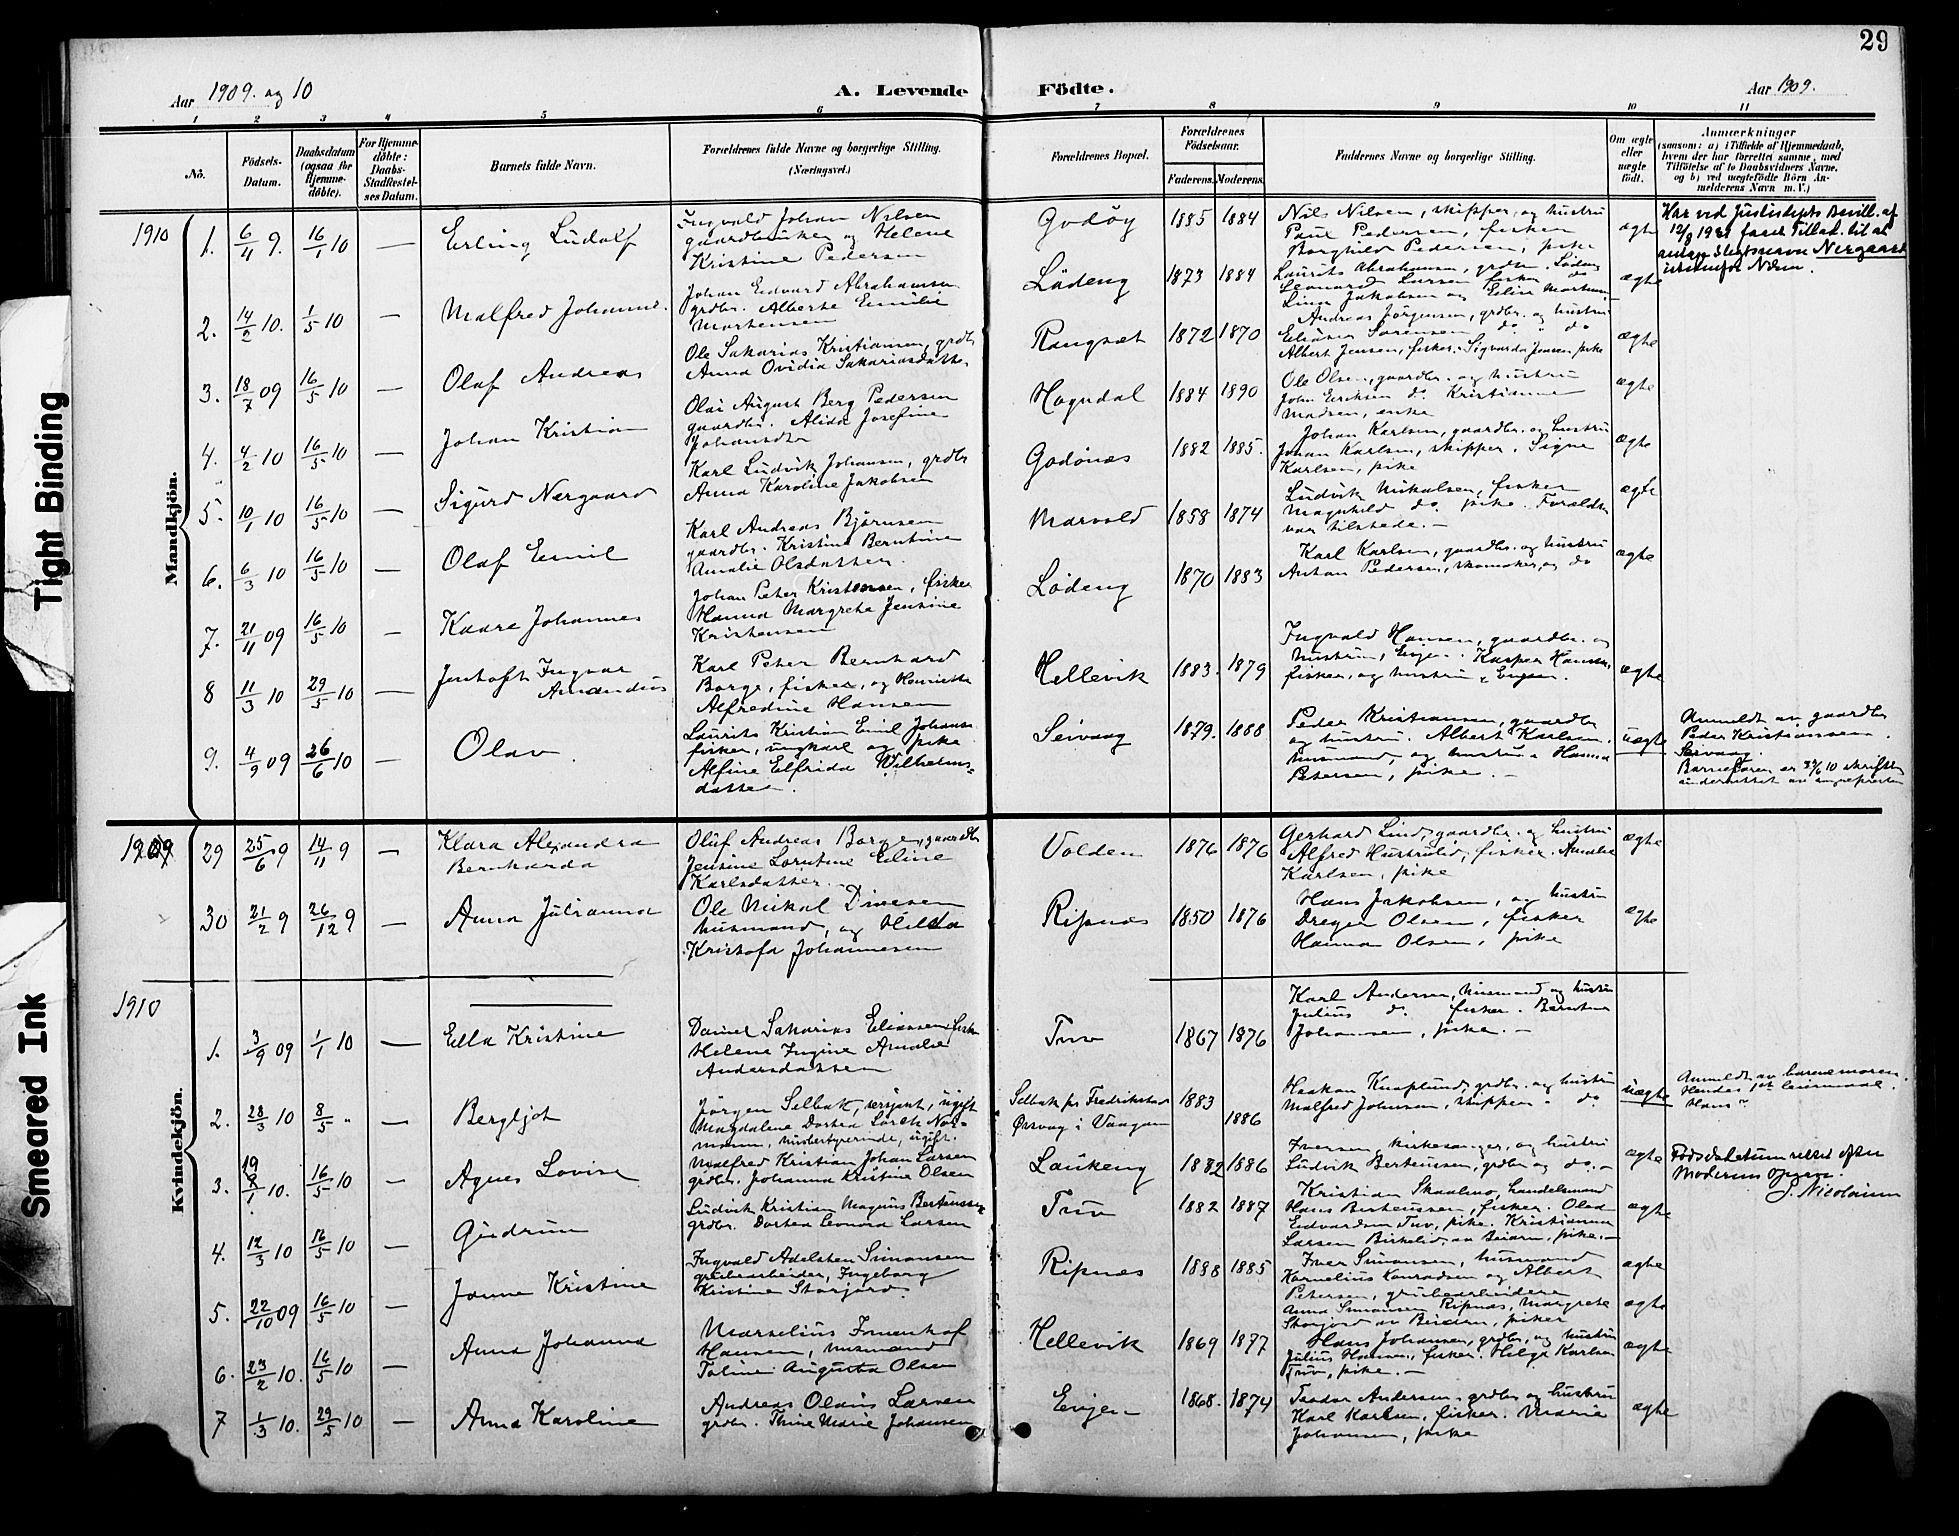 29
Aar 1909. og 10
A. Levende Födte.
Aar 1909.
1 2 3 4 5 6 7 8 9 10 11
Nô.
Födsels-Datum.
Daabsdatum (ogsaa for Hjemme-döbte).
For Hjemme-döbte: Daabs-Stadfæstel-ses Datum.
Barnets fulde Navn.
Forældrenes fulde Navne og borgerlige Stilling. (Næringsvei.)
Forældrenes Bopæl.
Forældrenes Födselsaar.
Faderens. Moderens.
Faddernes Navne og borgerlige Stilling.
Om ægte eller uægte födt.
Anmærkninger (saasom: a) i Tilfælde af Hjemmedaab, hvem der har forrettet samme, med Tilföielse af to Daabsvidners Navne, og b) ved uægtefödte Börn An-melderens Navn m. V.)
Mandkjön.
1910
1. 6/4 9. 16/1 10 — Erling Ludolf
Ingvald Johan Nilsen
gaardbruker og Helene
Kristine Pedersen
Godøy 1885 1884
Nils Nilsen, skipper, og hustru
Paul Pedersen, fisker
Borghild Pedersen, pike
ægte
Har ved Justisdepts Bevill. af
12/8 1931 faaet Tillat. til at
antage Slegtsnavn Nergaard
istedenfor Nilsen.
2. 14/2 10. 1/5 10 — Malfred Johannes.
Johan Edvard Abrahamsen
grdbr. Alberte Emilie
Mortensen
Lødeng 1873 1884
Laurits Abrahamsen, grdbr. Løding
Leonard Larsen fisker do
Lina Jakobsen og Eline Mortensen
ægte
3. 18/7 09 16/5 10 — Olaf Andreas
Ole Sakarias Kristiansen, grdbr
Anna Ovidia Sakariasdatter
Rangsæt 1872 1870
Andreas Jørgensen, grdbr. og hustru
Eliaser Sørensen do " do
Albert Jensen, fisker. Sigvarda Jensen pike
ægte
4. 4/2 10 16/5 10 — Johan Kristian
Olai August Berg Pedersen
gaardbr. Alida Josefine
Johansdtr
Hagndal 1884 1890
Ole Olsen, gaardbr. og hustru
John Eriksen do. Kristianne
Madsen, enke
ægte
5. 10/1 10 16/5 10 — Sigurd Nergaard
Karl Ludvik Johansen, grdbr
Anna Karoline Jakobsen
Godønes 1882 1885.
Johan Karlsen, gaardbr. og hustru
Johan Karlsen, skipper. Signe
Karlsen, pike
ægte
6. 6/3 10 16/5 10 — Olaf Emil
Karl Andreas Bjørnsen
gaardbr. Kristine Berntine
Amalie Olsdatter.
Marvold 1858 1874
Ludvik Nikolsen, fisker
Magnhild do. pike. Forældre
var tilstede. —
ægte
7. 21/11 09 16/5 10 — Kaare Johannes
Johan Peter Kristensen, fisker
Hanna Margrete Jensine
Kristensen
Lødeng 1870 1883
Karl Karlsen, gaardbr. og hustru
Anton Pedersen, skomaker, og do
ægte
8 11/3 10 29/5 10 — Jentoft Ingvar
Amandus
Karl Peter Bernhard
Borge, fisker, og Henriette
Alfredine Hansen
Hellevik 1883. 1879
Ingvald Hansen, gaardbr. og
hustru, Evjen. Kasper Hansen,
fisker, og hustru, Evjen.
ægte
9. 4/9 09 26/6 10 — Olav
Laurits Kristian Emil Johans.
fisker, ungkarl og pike
Alfine Elfrida Wilhelms-
datter.
Seivaag 1879. 1888
Peder Kristiansen, gaardbr
og hustru. Albert Karlsen.
husmand, og hustru. Hanna
Petersen, pike. —
uægte
Anmeldt av gaardbr
Peder Kristiansen.
Seivaag.
Barnefaren er 22/6 10 skriftlig
underrettet av sogneprester
1909
29 25/6 9 14/11 9 — Klara Alexandra
Bernharda
Oluf Andreas Borge, gaardbr
Jensine Lorntine Eline
Karlsdatter. —
Volden 1876 1876
Gerhard Lind, gaardbr. og hustru
Alfred Hustrulid, fisker. Amalie
Karlsen, pike
ægte
30 21/2 9 26/12 9 — Anna Julianna
Ole Nickal Dinesen
husmand, og Hilda
Kristofa Johannesen
Ripnes 1850 1876
Hans Jakobsen, og hustru
Dreyer Olsen, fisker
Hanna Olsen, pike
ægte
1910
Kvindekjön.
1. 3/9 09 1/1 10 — Ella Kristine
Daniel Sakarias Eliassen, fisker
Helene Ingine Amalie
Andersdatter
Tuv 1867 1876
Karl Andersen, husmand og hustru
Julius do. fisker. Berntine
Johansen, pike. —
2. 28/3 10 8/5 " — Bergljot
Jørgen Selbak, sersjant, ugift
Magdalene Dorthea Lorch Nor-
mann, husbestyrerinde, ugift.
Selbak pr Fredrikstad
Ørsvaag i Vaagan
1883 1886
Haakon Knaplund, grdbr. og hustru
Malfred Johnsen, skipper " do
uægte
Anmeldt av barnemoren.
Hendes 1st leiermaal.
Hans "
3. 19 8/1 10. 16/5 10 — Agnes Lovise
Malfred Kristian Johan Larsen
grdbr. Johanna Kristine Olsen
Laukeng 1882 1886
Iversen, kirkesanger, og hustru
Ludvik Berteussen, grdbr og do. —
ægte
Fødselsdatum rettet efter
Moderens Opgave.
S. Nicolaisen
4. 12/3 10 16/5 10 — Gudrun
Ludvik Kristian Magnus Berteussen
grdbr. Dortea Leonora Larsen
Tuv 1882 1887
Kristian Skaalmo, handelsmand
Hans Berteussen, fisker. Olea
Edvardsen Tuv, pike. Kristianna
Larsen Birkelid, av Beiarn, pike. —
ægte
5. 22/10 09 16/5 10 — Jonne Kristine
Ingvald Adelsten Simonsen
grubearbeider, Ingeborg
Kristine Storjord.
Ripnes 1888 1885
Iver Simonsen, husmand
Kornelius Konradsen og Albert
Petersen, grubearbeidere
Anna Simonsen Ripnes, Margrete
Storjord av Beiarn, piker
ægte
ægte
6. 23/2 10. 16/5 10 — Anna Johanna
Marselius Fomenhof
Hansen, husmand
Toline Augusta Olsen
Hellevik 1869 1877
Hans Johansen, grdbr, og hustru
Julius Hansen, fisker. Helga Karlsen
Tuv, pike. —
ægte
7 1/3 10. 29/5 10 — Anna Karoline
Andreas Olaus Larsen
grdbr. Thine Marie Johansen
Evjen 1868. 1874
Teodor Andersen, grdbr og hustru
Karl Karlsen, fisker. Marie
Johansen, pike
ægte
Tight Binding
Smeared Ink